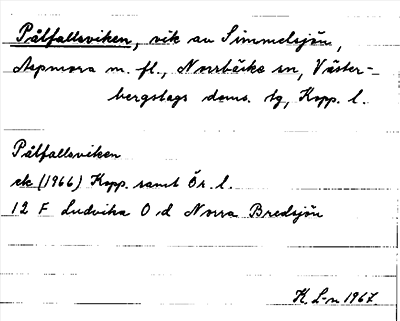 Pålfallsviken, vik av Simmelsjön,
Aspmora m. fl., Norrbärke sn, Väster-
bergslags doms. tg, Kopp. l.
Pålfallsviken
ek (1966) Kopp. samt Ör. l.
12 F Ludvika O d Norra Bredsjön
K. L-n 1967.